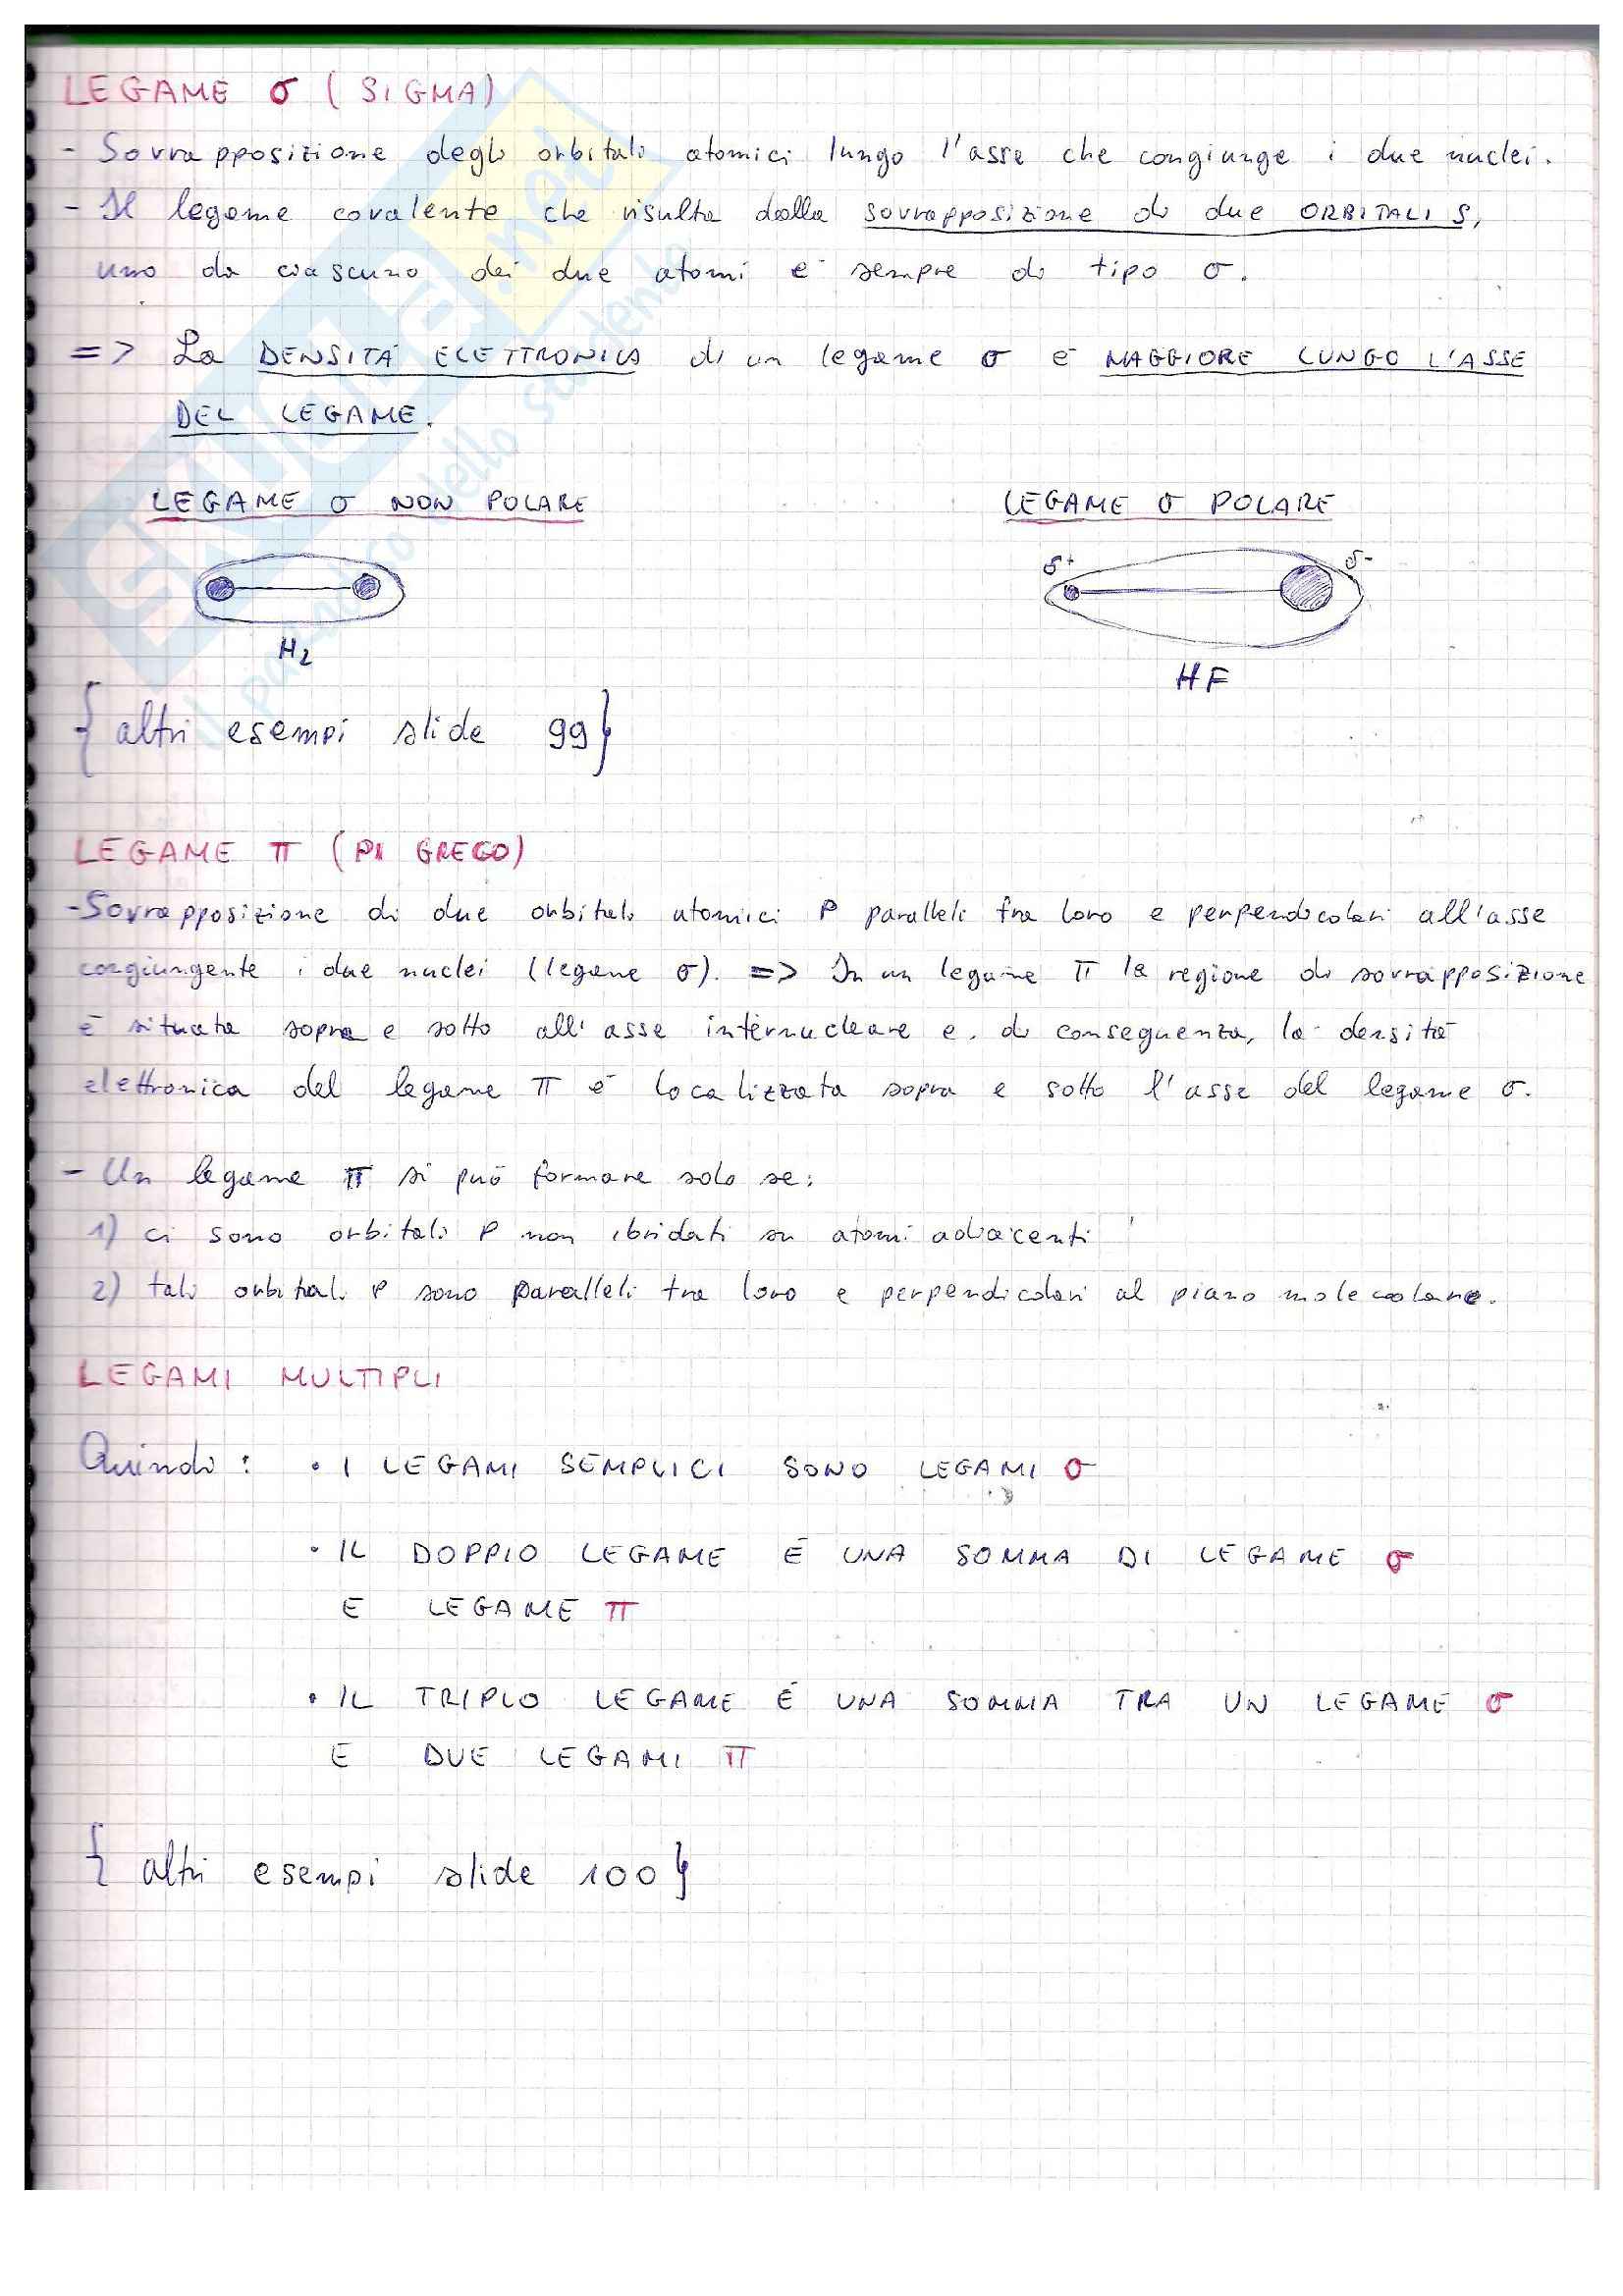 LEGAME σ (SIGMA)
- Sovrapposizione degli orbitali atomici lungo l'asse che congiunge i due nuclei.
- Il legame covalente che risulta dalla sovrapposizione di due ORBITALI S,
uno da ciascuno dei due atomi è sempre di tipo σ.
=> La DENSITÀ ELETTRONICA di un legame σ è MAGGIORE LUNGO L'ASSE
DEL LEGAME.
LEGAME σ NON POLARE
LEGAME σ POLARE
δ+ δ-
H2
HF
{altri esempi slide 99}
LEGAME π (PI GRECO)
-Sovrapposizione di due orbitali atomici P paralleli fra loro e perpendicolari all'asse
congiungente i due nuclei (legame σ). => In un legame π la regione di sovrapposizione
è situata sopra e sotto all'asse internucleare e, di conseguenza, la densità
elettronica del legame π è localizzata sopra e sotto l'asse del legame σ.
- Un legame π si può formare solo se:
1) ci sono orbitali P non ibridati su atomi adiacenti
2) tali orbitali P sono paralleli tra loro e perpendicolari al piano molecolare.
LEGAMI MULTIPLI
Quindi: • I LEGAMI SEMPLICI SONO LEGAMI σ
• IL DOPPIO LEGAME È UNA SOMMA DI LEGAME σ
E LEGAME π
• IL TRIPLO LEGAME È UNA SOMMA TRA UN LEGAME σ
E DUE LEGAMI π
{altri esempi slide 100}